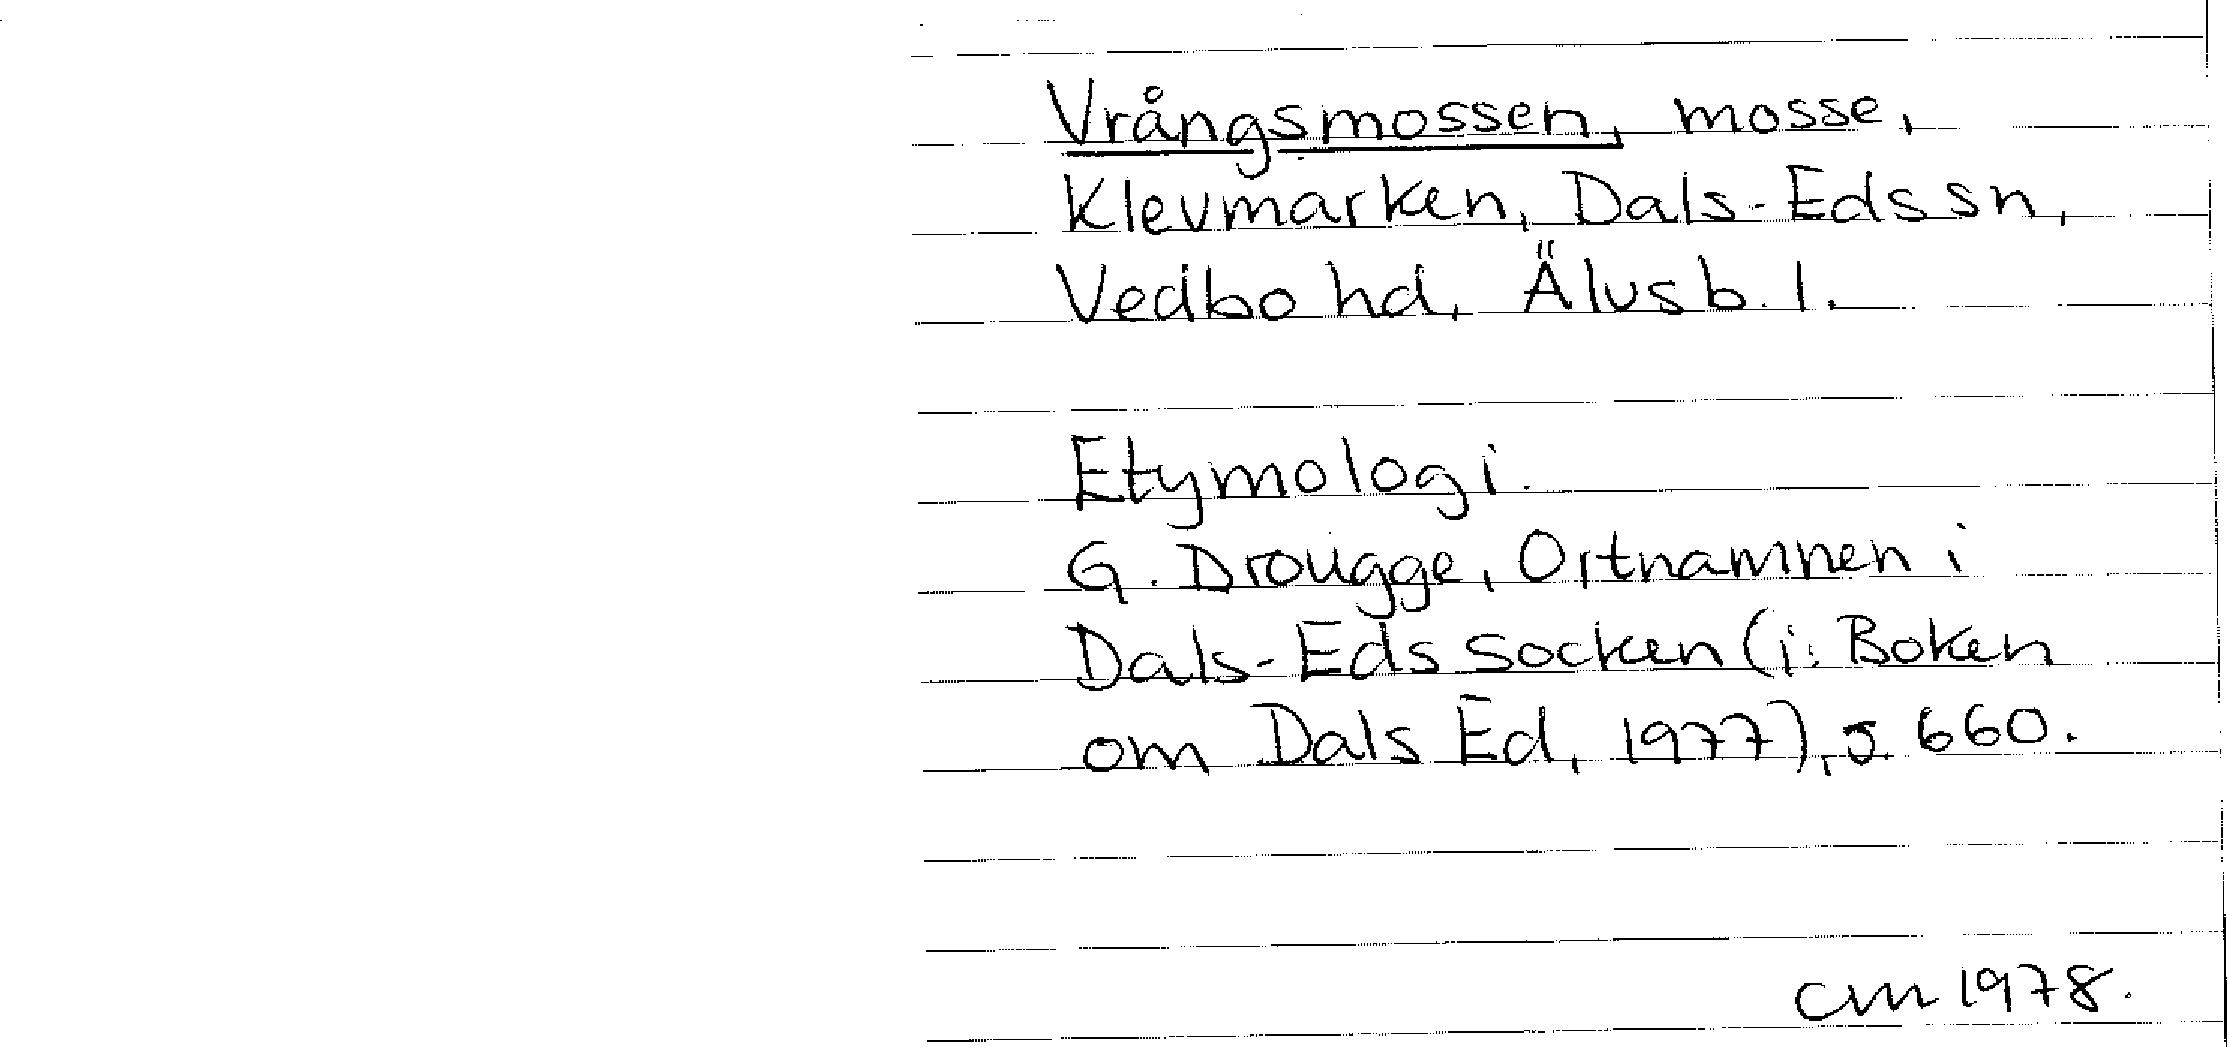 Vrångsmossen, mosse,
Klevmarken, Dals-Eds sn,
Vedbo hd, Älvsb. l.
Etymologi.
G. Drougge, Ortnamnen i
Dals-Eds socken (i: Boken
om Dals Ed, 1977), s. 660.
CM 1978.